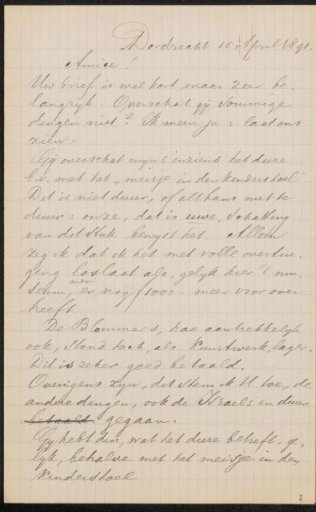 Dordrecht 16 April 1891.
Amice!
Uw brief is wel kort maar zeer be-
langrijk. Overschat gij sommige
dingen niet? Ik meen ja: laat ons
zien.
Gij overschat mijns inziens het dure
bij met het „meisje in den kinderstoel"
Dit is niet duur, of althans niet te
duur: onze, dat is uwe, schatting
van dit stuk bewijst het. Alleen
zeg ik dat ik het met volle overtui-
ging loslaat als, gelijk heer T nu,
men er nog f 1000 - meer voor over
heeft.
De Blommers, hoe aantrekkelijk
ook, stond toch, als kunstwerk, lager.
Dit is zeker goed betaald.
Overigens zijn, dit stem ik U toe, de
andere dingen, ook de Israels en duur
betaald gegaan.
Gij hebt dus, wat het dure betreft, ge-
lijk, behalve met het meisje in den
Kinderstoel
2